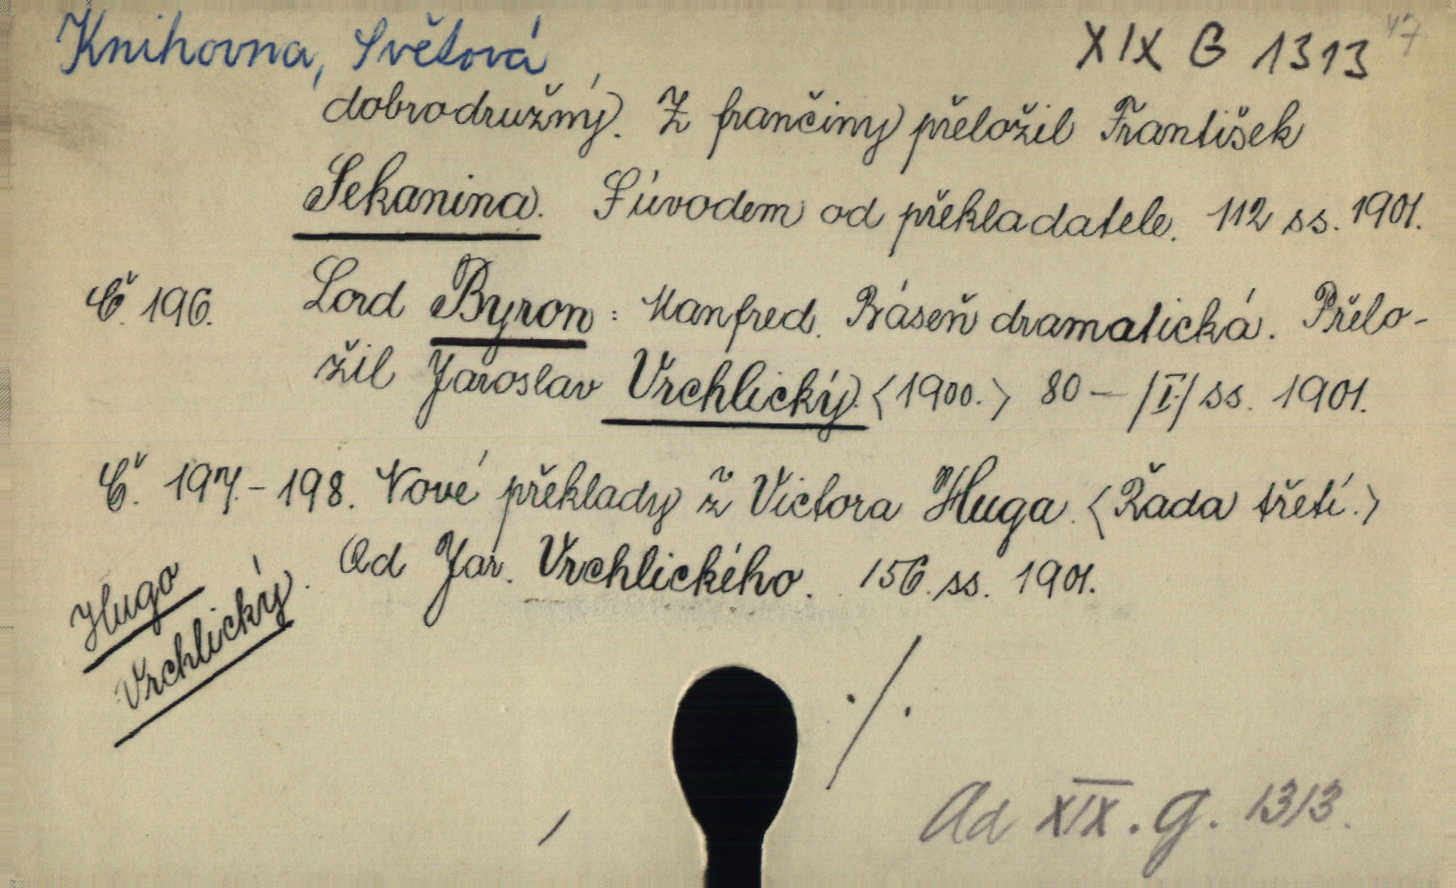 Knihovna, Světová XIX G 1313 47
dobrodružný. Z frančiny přeložil František
Sekanina. S úvodem od překladatele. 112 ss. 1901.
Č. 196. Lord Byron: Manfred. Báseň dramatická. Přelo-
žil Jaroslav Vrchlický. <1900.> 80 - /I./ ss. 1901.
Č. 197.-198. Nové překlady z Victora Huga. <Řada třetí.>
Od Jar. Vrchlického. 156. ss. 1901.
Hugo
Vrchlický.
./.
Ad XIX. G. 1313.